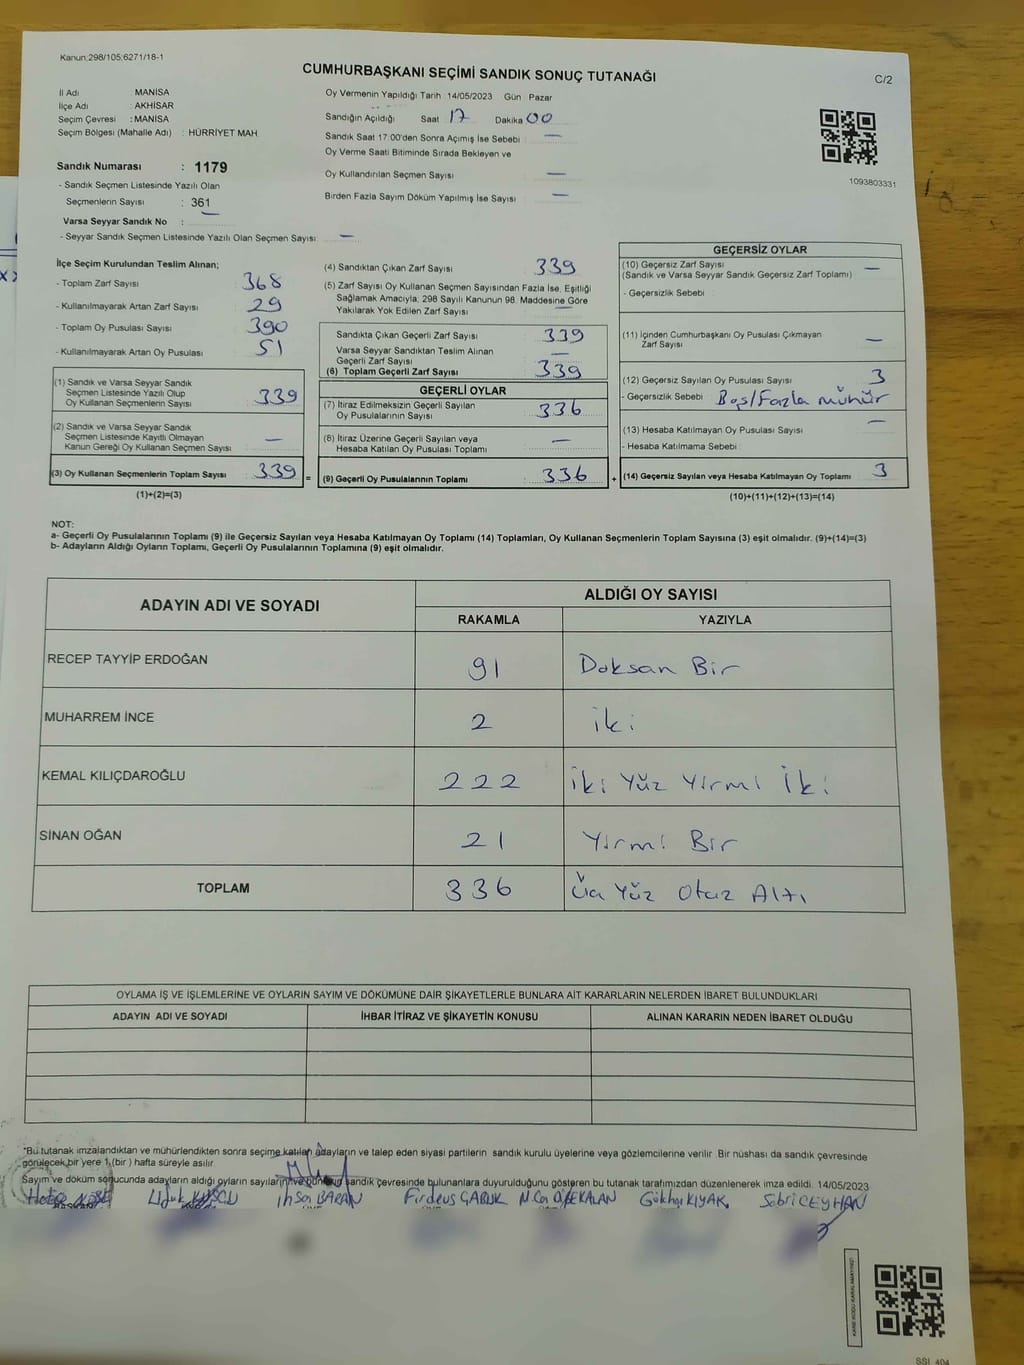 Kanun:298/105;6271/18-1
CUMHURBAŞKANI SEÇİMİ SANDIK SONUÇ TUTANAĞI
C/2
İl Adı : MANİSA
İlçe Adı : AKHİSAR
Seçim Çevresi : MANİSA
Seçim Bölgesi (Mahalle Adı) : HÜRRİYET MAH.
Oy Vermenin Yapıldığı Tarih :14/05/2023 Gün Pazar
Sandığın Açıldığı Saat 17 Dakika 00
Sandık Saat 17:00'den Sonra Açımış İse Sebebi : —
Oy Verme Saati Bitiminde Sırada Bekleyen ve
Oy Kullandırılan Seçmen Sayısı —
Birden Fazla Sayım Döküm Yapılmış İse Sayısı : —
1093803331
Sandık Numarası : 1179
- Sandık Seçmen Listesinde Yazılı Olan
Seçmenlerin Sayısı : 361
Varsa Seyyar Sandık No : —
- Seyyar Sandık Seçmen Listesinde Yazılı Olan Seçmen Sayısı: —
İlçe Seçim Kurulundan Teslim Alınan;
- Toplam Zarf Sayısı : 368
- Kullanılmayarak Artan Zarf Sayısı : 29
- Toplam Oy Pusulası Sayısı : 390
- Kullanılmayarak Artan Oy Pusulası : 51
(1) Sandık ve Varsa Seyyar Sandık
Seçmen Listesinde Yazılı Olup
Oy Kullanan Seçmenlerin Sayısı : 339
(2) Sandık ve Varsa Seyyar Sandık
Seçmen Listesinde Kayıtlı Olmayan
Kanun Gereği Oy Kullanan Seçmen Sayısı : —
(3) Oy Kullanan Seçmenlerin Toplam Sayısı : 339 =
(1)+(2)=(3)
(4) Sandıktan Çıkan Zarf Sayısı : 339
(5) Zarf Sayısı Oy Kullanan Seçmen Sayısından Fazla İse, Eşitliği
Sağlamak Amacıyla, 298 Sayılı Kanunun 98. Maddesine Göre
Yakılarak Yok Edilen Zarf Sayısı : —
Sandıkta Çıkan Geçerli Zarf Sayısı : 339
Varsa Seyyar Sandıktan Teslim Alınan
Geçerli Zarf Sayısı : —
(6) Toplam Geçerli Zarf Sayısı : 339
GEÇERLİ OYLAR
(7) İtiraz Edilmeksizin Geçerli Sayılan
Oy Pusulalarının Sayısı : 336
(8) İtiraz Üzerine Geçerli Sayılan veya
Hesaba Katılan Oy Pusulası Toplamı : —
(9) Geçerli Oy Pusulalarının Toplamı : 336 +
GEÇERSİZ OYLAR
(10) Geçersiz Zarf Sayısı
(Sandık ve Varsa Seyyar Sandık Geçersiz Zarf Toplamı) : —
- Geçersizlik Sebebi :
(11) İçinden Cumhurbaşkanı Oy Pusulası Çıkmayan
Zarf Sayısı : —
(12) Geçersiz Sayılan Oy Pusulası Sayısı : 3
- Geçersizlik Sebebi : Boş/Fazla mühür
(13) Hesaba Katılmayan Oy Pusulası Sayısı : —
- Hesaba Katılmama Sebebi :
(14) Geçersiz Sayılan veya Hesaba Katılmayan Oy Toplamı : 3
(10)+(11)+(12)+(13)=(14)
NOT:
a- Geçerli Oy Pusulalarının Toplamı (9) ile Geçersiz Sayılan veya Hesaba Katılmayan Oy Toplamı (14) Toplamları, Oy Kullanan Seçmenlerin Toplam Sayısına (3) eşit olmalıdır. (9)+(14)=(3)
b- Adayların Aldığı Oyların Toplamı, Geçerli Oy Pusulalarının Toplamına (9) eşit olmalıdır.
ADAYIN ADI VE SOYADI ALDIĞI OY SAYISI
RAKAMLA YAZIYLA
RECEP TAYYİP ERDOĞAN 91 Doksan Bir
MUHARREM İNCE 2 iki
KEMAL KILIÇDAROĞLU 222 İki Yüz Yirmi İki
SİNAN OĞAN 21 Yirmi Bir
TOPLAM 336 Üç Yüz Otuz Altı
OYLAMA İŞ VE İŞLEMLERİNE VE OYLARIN SAYIM VE DÖKÜMÜNE DAİR ŞİKAYETLERLE BUNLARA AİT KARARLARIN NELERDEN İBARET BULUNDUKLARI
ADAYIN ADI VE SOYADI İHBAR İTİRAZ VE ŞİKAYETİN KONUSU ALINAN KARARIN NEDEN İBARET OLDUĞU
*Bu tutanak imzalandıktan ve mühürlendikten sonra seçime katılan adayların ve talep eden siyasi partilerin sandık kurulu üyelerine veya gözlemcilerine verilir. Bir nüshası da sandık çevresinde
görülecek bir yere 1 (bir ) hafta süreyle asılır.
Sayım ve döküm sonucunda adayların aldığı oyların sayılarının ve bunun sandık çevresinde bulunanlara duyurulduğunu gösteren bu tutanak tarafımızdan düzenlenerek imza edildi. 14/05/2023
Ufuk İhsan BARAN Firdevs Gökhan KIYAK Sabri CEYHAN